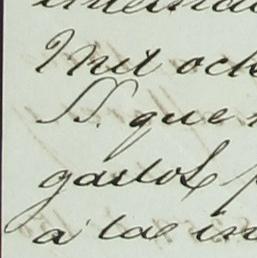 Mil och
SS. que
gastos
á las in